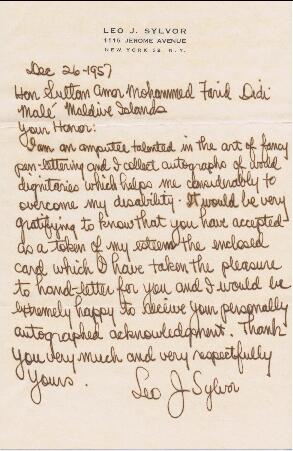 LEO J. SYLVOR
1115 JEROME AVENUE
NEW YORK 52, N. Y.
Dec 26-1957
Hon Sultan Amor Mohammed Farid Didi
Malé Maldive Islands
Your Honor:
I am an amputee talented in the art of fancy
pen-lettering and I collect autographs of world
dignitaries which helps me considerably to
overcome my disability. It would be very
gratifying to know that you have accepted
as a token of my esteem the enclosed
card which I have taken the pleasure
to hand-letter for you and I would be
extremely happy to receive your personally
autographed acknowledgment. Thank
you very much and very respectfully
yours.
Leo J Sylvor